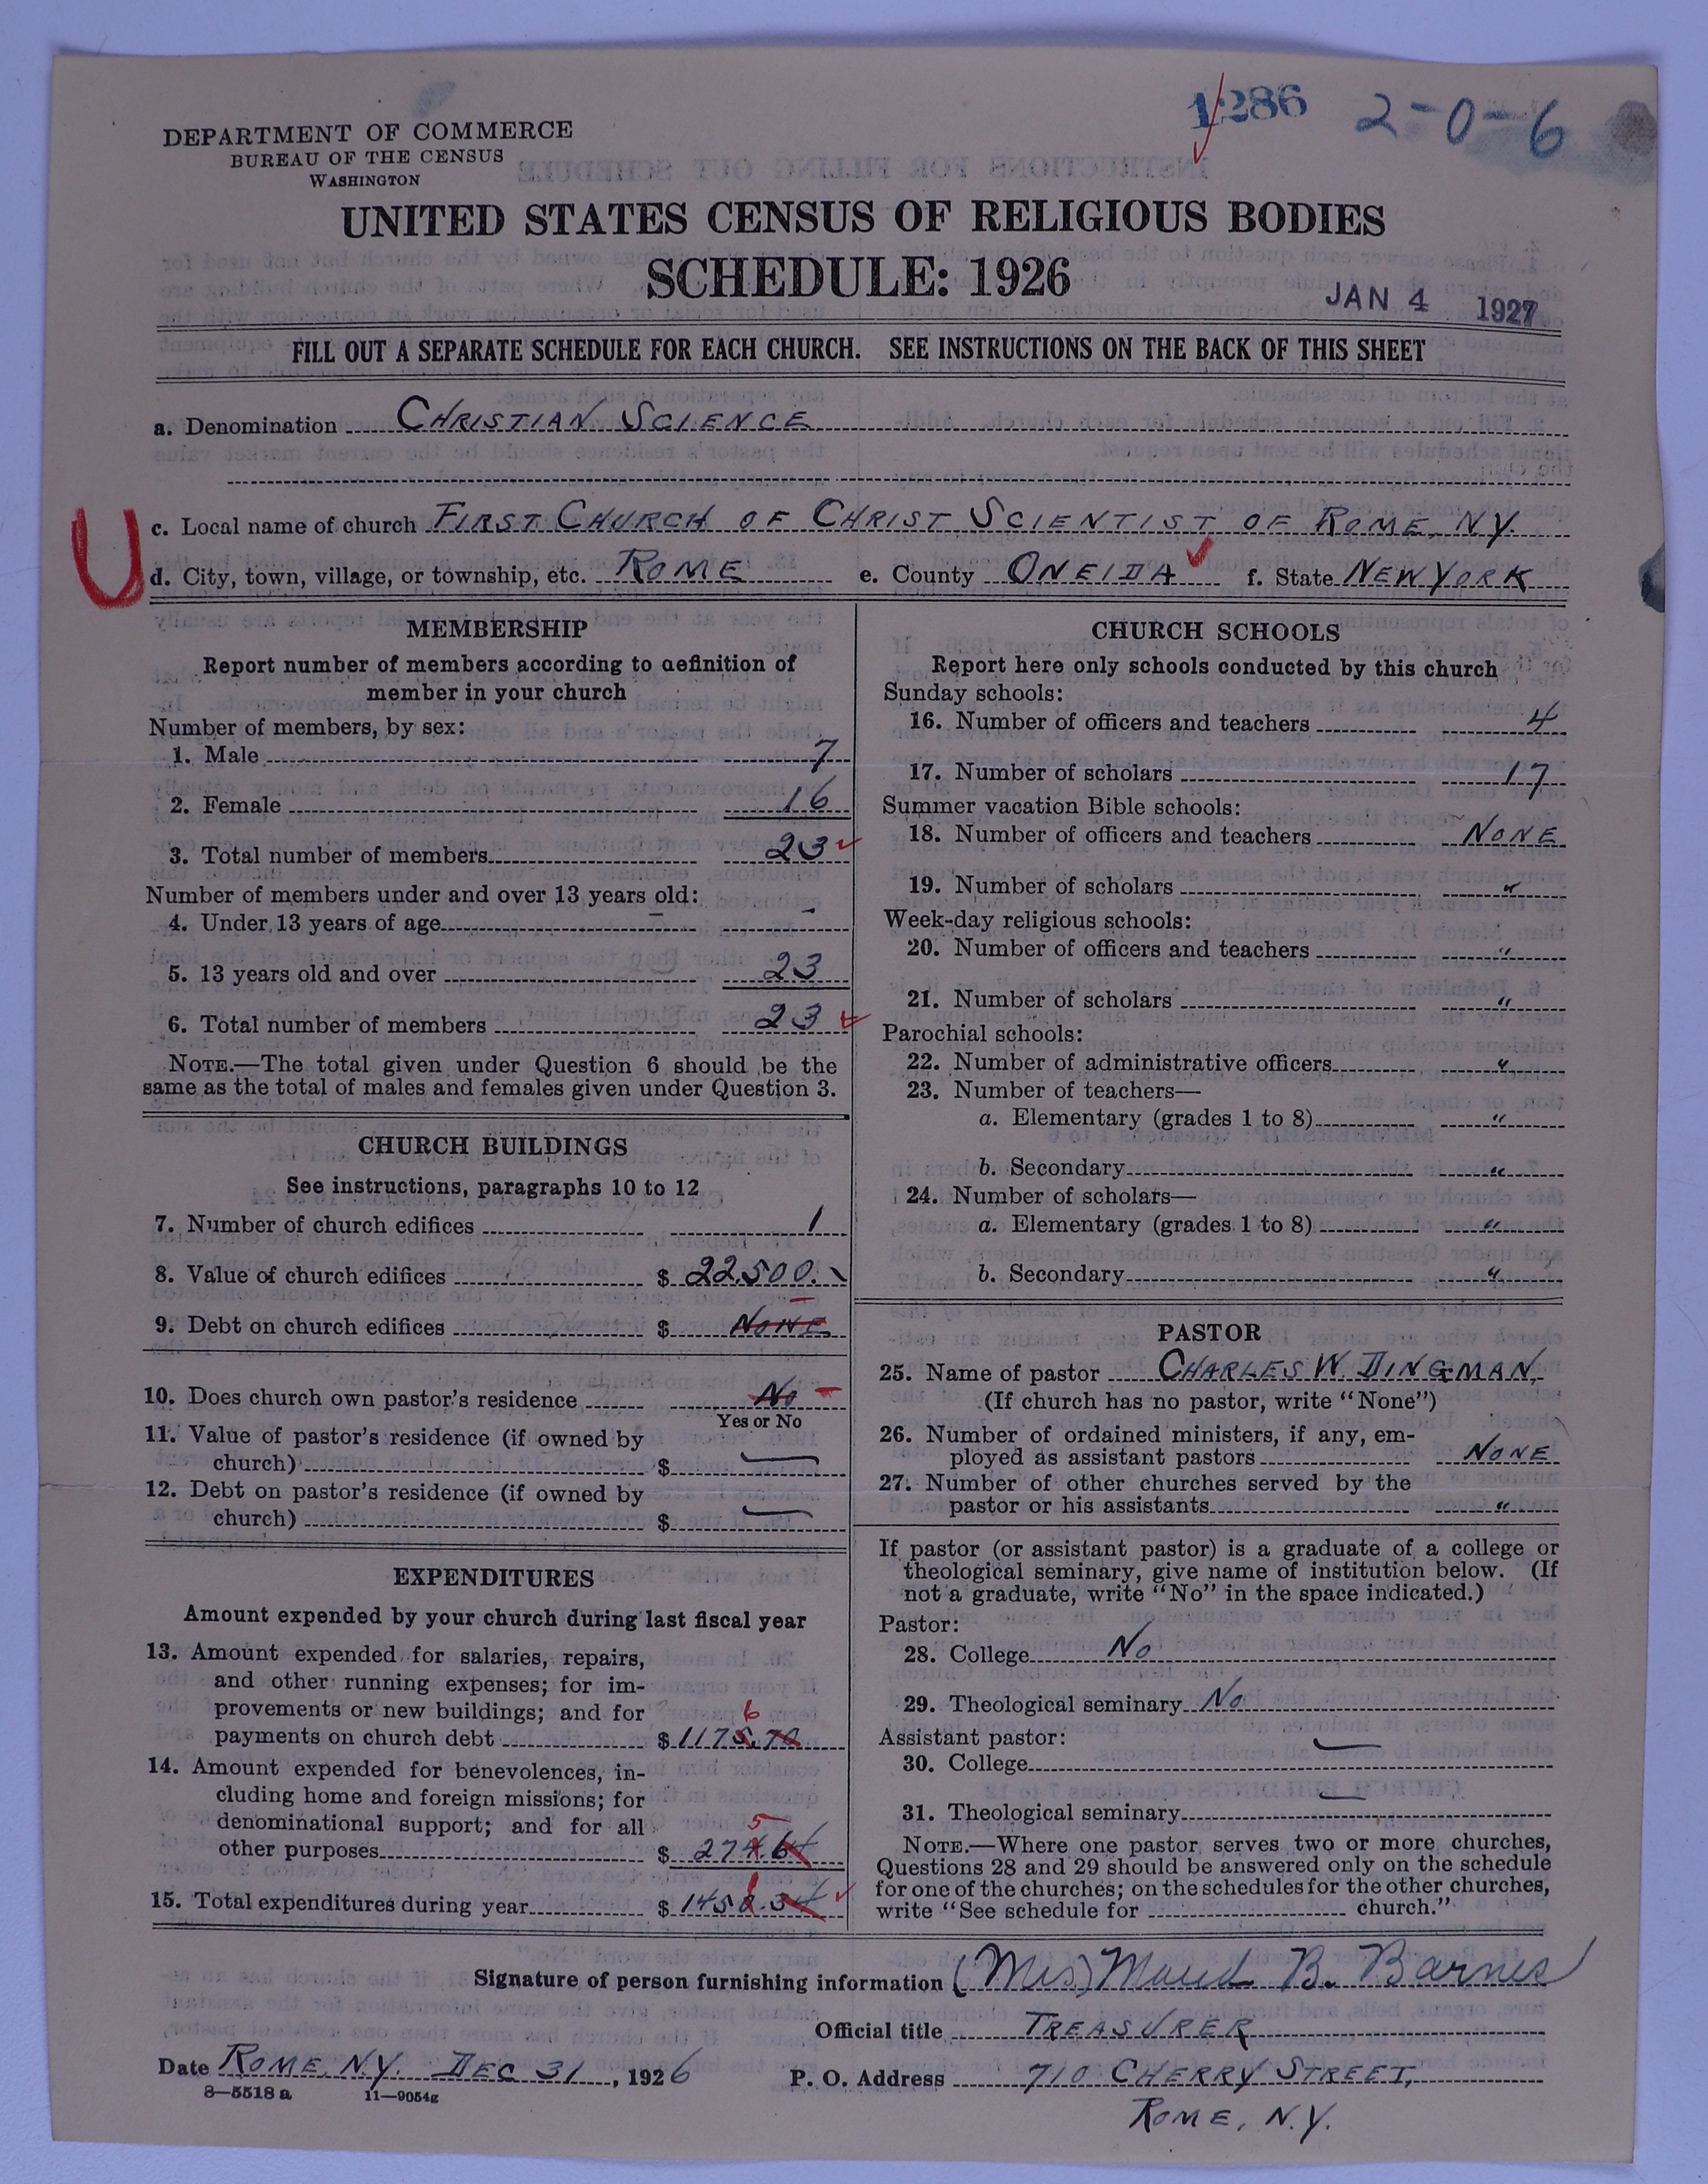 1286 2-0-6
DEPARTMENT OF COMMERCE
BUREAU OF THE CENSUS
WASHINGTON
UNITED STATES CENSUS OF RELIGIOUS BODIES
SCHEDULE: 1926
JAN 4 1927
FILL OUT A SEPARATE SCHEDULE FOR EACH CHURCH. SEE INSTRUCTIONS ON THE BACK OF THIS SHEET
a. Denomination CHRISTIAN SCIENCE
U
c. Local name of church FIRST CHURCH OF CHRIST SCIENTIST OF ROME, N.Y.
d. City, town, village, or township, etc. ROME e. County ONEIDA f. State NEW YORK
MEMBERSHIP
Report number of members according to definition of
member in your church
Number of members, by sex:
1. Male 7
2. Female 16
3. Total number of members 23
Number of members under and over 13 years old:
4. Under 13 years of age -
5. 13 years old and over 23
6. Total number of members 23
NOTE.—The total given under Question 6 should be the
same as the total of males and females given under Question 3.
CHURCH BUILDINGS
See instructions, paragraphs 10 to 12
7. Number of church edifices 1
8. Value of church edifices $ 22,500.
9. Debt on church edifices $ NONE
10. Does church own pastor's residence No
Yes or No
11. Value of pastor's residence (if owned by
church) $ —
12. Debt on pastor's residence (if owned by
church) $ —
EXPENDITURES
Amount expended by your church during last fiscal year
13. Amount expended for salaries, repairs,
and other running expenses; for im-
provements or new buildings; and for
6
payments on church debt $ 1175.70
14. Amount expended for benevolences, in-
cluding home and foreign missions; for
denominational support; and for all
5
other purposes $ 274.64
1
15. Total expenditures during year $ 1450.34
CHURCH SCHOOLS
Report here only schools conducted by this church
Sunday schools:
16. Number of officers and teachers 4
17. Number of scholars 17
Summer vacation Bible schools:
18. Number of officers and teachers NONE
19. Number of scholars "
Week-day religious schools:
20. Number of officers and teachers "
21. Number of scholars "
Parochial schools:
22. Number of administrative officers "
23. Number of teachers—
a. Elementary (grades 1 to 8) "
b. Secondary "
24. Number of scholars—
a. Elementary (grades 1 to 8) "
b. Secondary "
PASTOR
25. Name of pastor CHARLES W. DINGMAN,
(If church has no pastor, write "None")
26. Number of ordained ministers, if any, em-
ployed as assistant pastors NONE
27. Number of other churches served by the
pastor or his assistants "
If pastor (or assistant pastor) is a graduate of a college or
theological seminary, give name of institution below. (If
not a graduate, write "No" in the space indicated.)
Pastor:
28. College No
29. Theological seminary No
Assistant pastor:
30. College —
31. Theological seminary —
NOTE.—Where one pastor serves two or more churches,
Questions 28 and 29 should be answered only on the schedule
for one of the churches; on the schedules for the other churches,
write "See schedule for church."
Signature of person furnishing information (Mrs) Maud B. Barnes
Official title TREASURER
Date ROME, N.Y. DEC 31, 1926 P. O. Address 710 CHERRY STREET,
8—5518 a 11—9054g
ROME, N.Y.